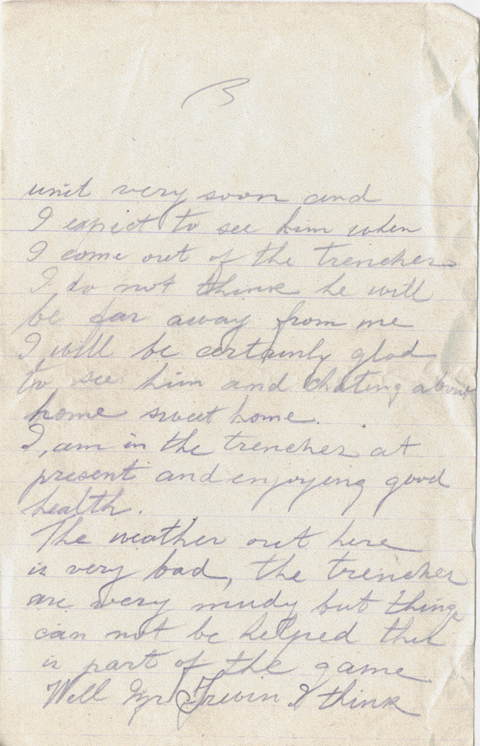 3
unit very soon and
I expect to see him when
I come out of the trenches
I do not think he will
be far away from me
I will be certainly glad
to see him and chating about
home sweet home.
I, am in the trenches at
present and enjoying good
health.
The weather out here
is very bad, the trenches
are very mudy but things
can not be helped this
is part of the game
Well Mr. Trevin I think